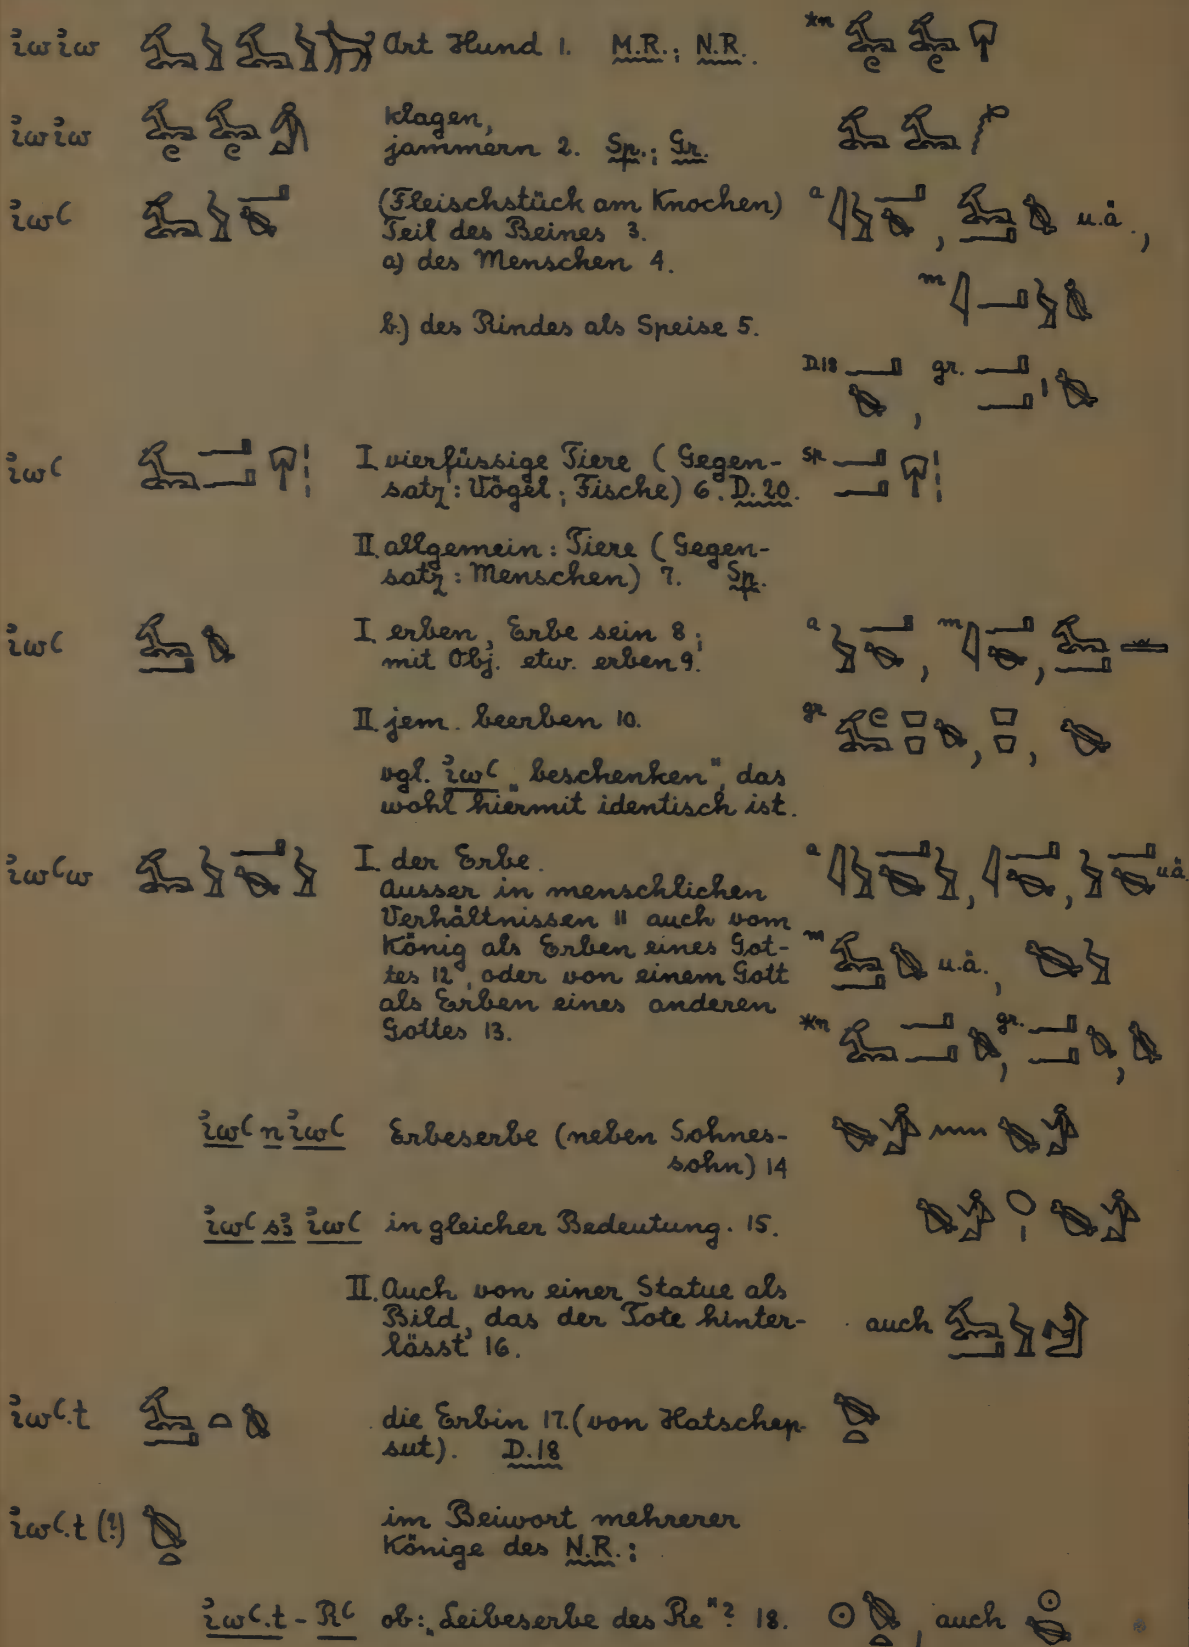 ỉwỉw Art Hund 1. M.R.; N.R. *n
ỉwỉw klagen,
jammern 2. Sp.; Gr.
ỉwꜥ (Fleischstück am Knochen) a , u.ä.,
Teil des Beines 3.
a) des Menschen 4. m
b.) des Rindes als Speise 5.
D.18 , gr.
ỉwꜥ I. vierfüssige Tiere (Gegen- sp.
satz: Vögel; Fische) 6. D. 20.
II. allgemein: Tiere (Gegen-
satz: Menschen) 7. Sp.
ỉwꜥ I. erben, Erbe sein 8; a , m ,
mit Obj. etw. erben 9.
II. jem. beerben 10. gr. , ,
vgl. ỉwꜥ „beschenken", das
wohl hiermit identisch ist.
ỉwꜥw I. der Erbe. a , , u.ä.
Ausser in menschlichen
Verhältnissen 11 auch vom
König als Erben eines Got- m u.ä.,
tes 12, oder von einem Gott
als Erben eines anderen
Gottes 13. *n , gr. ,
ỉwꜥ n ỉwꜥ Erbeserbe (neben Sohnes-
sohn) 14
ỉwꜥ sꜣ ỉwꜥ in gleicher Bedeutung. 15.
II. Auch von einer Statue als
Bild, das der Tote hinter- auch
lässt 16.
ỉwꜥ.t die Erbin 17. (von Hatschep-
sut). D.18
ỉwꜥ.t (?) im Beiwort mehrerer
Könige des N.R.:
ỉwꜥ.t - Rꜥ ob: „Leibeserbe des Re"? 18. , auch